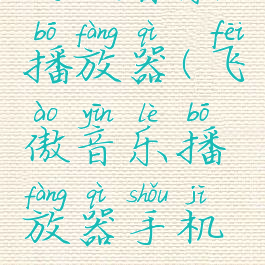 bō fàng qì fēi
播放器(飞
ào yīn lè bō
傲音乐播
fàng qì shǒu jī
放器手机